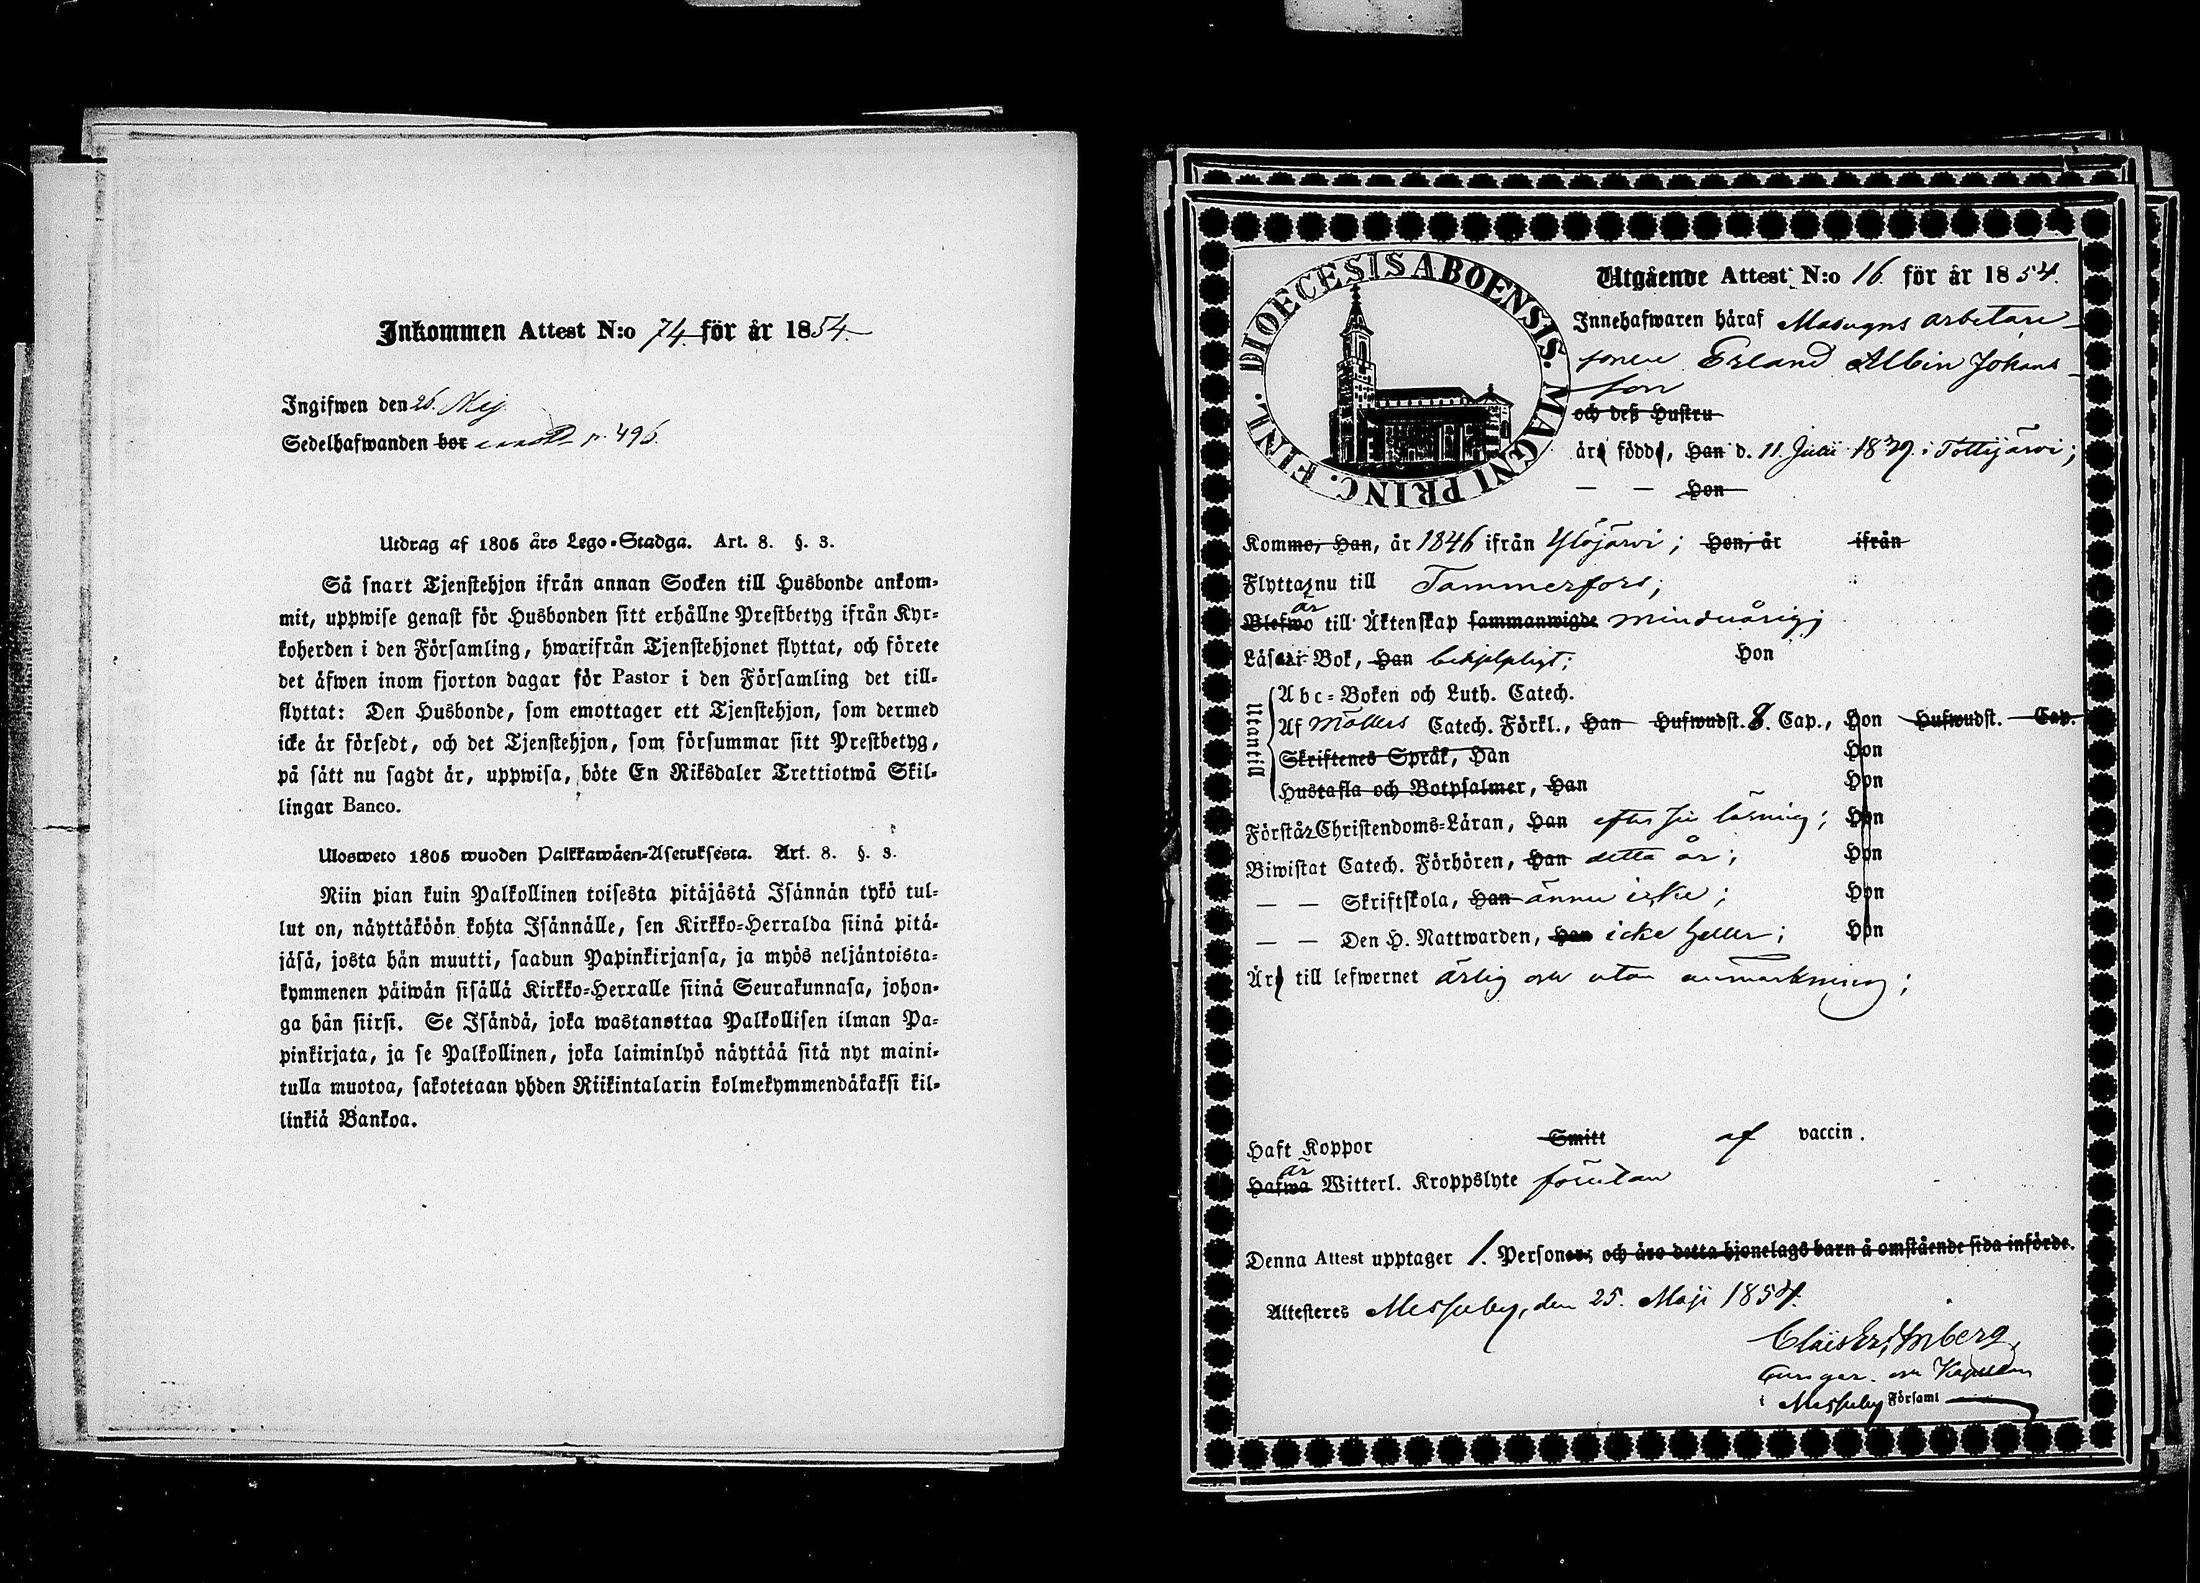 Inkommen Attest N:o 74. för år 1854.
Ingifwen den 26. Maj
Sedelhafwanden bor p. 496.
Utdrag af 1805 års Lego-Stadga. Art. 8. §. 3.
Så snart Tjenstehjon ifrån annan Socken till Husbonde ankom-
mit, uppwise genast för Husbonden sitt erhållne Prestbetyg ifrån Kyr-
koherden i den Församling, hwarifrån Tjenstehjonet flyttat, och förete
det äfwen inom fjorton dagar för Pastor i den Församling det till-
flyttat: Den Husbonde, som emottager ett Tjenstehjon, som dermed
icke är försedt, och det Tjenstehjon, som försummar sitt Prestbetyg,
på sätt nu sagdt är, uppwisa, böte En Riksdaler Trettiotwå Skil-
lingar Banco.
Ulosweto 1805 wuoden Palkkawäen-Asetuksesta. Art. 8. §. 3.
Niin pian kuin Palkollinen toisesta pitäjästä Isännän tykö tul-
lut on, näyttäköön kohta Isännälle, sen Kirkko-Herralda siinä pitä-
jäsä, josta hän muutti, saadun Papinkirjansa, ja myös neljäntoista-
kymmenen päiwän sisällä Kirkko-Herralle siinä Seurakunnasa, johon-
ga hän siirsi. Se Isändä, joka wastanottaa Palkollisen ilman Pa-
pinkirjata, ja se Palkollinen, joka laiminlyö näyttää sitä nyt maini-
tulla muotoa, sakotetaan yhden Riikintalarin kolmekymmendäkaksi kil-
linkiä Bankoa.
DIOECESIS ABOENSIS. MAGNI PRINC. FINL.
Utgående Attest N:o 16. för år 1854.
Innehafwaren häraf Masugns arbetare-
sonen Erland Albin Johans-
son
och deß Hustru
äro födde, Han d. 11. Julii 1839. i Tottijärvi;
— — Hon
Kommo, Han, år 1846 ifrån Ylöjärvi; Hon, år ifrån
Flyttar nu till Tammerfors;
är
Blefwo till Äktenskap sammanwigde minderårig;
Läser i Bok, Han behjelpligt; Hon
Utantill
Abc-Boken och Luth. Catech.
Af Möllers Catech. Förkl., Han Hufwudst. 8. Cap., Hon Hufwudst. Cap.
Skriftenes Språk, Han Hon
Hustafla och Botpsalmer, Han Hon
Förstår Christendoms-Läran, Han efter sin läsning; Hon
Biwistat Catech. Förhören, Han detta år; Hon
— — Skriftskola, Han ännu icke; Hon
— — Den H. Nattwarden, Han icke heller; Hon
Äro till lefwernet ärlig och utan anmärkning;
Haft Koppor Smitt af vaccin.
är
Hafwa Witterl. Kroppslyte förutan
Denna Attest upptager 1. Personer, och äro detta hjonelags barn å omstående sida införde.
Attesteres Messuby, den 25. Maji 1854.
i Messuby Församl